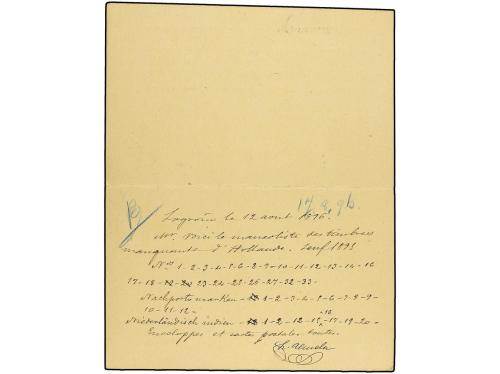 17.8.96.
Logroño le 12 aout 1896.
Mr. Voici le mancoliste des timbres
manquants d'Hollande. Senf 1895
Nos 1-2-3-4-5-6-8-9-10-11-12-13-14-16
17-18-23-24-25-26-27-32-33-
Nachportomarken - 1-2-3-4-5-6-7-8-9-
10-11-12-
Niederländisch indien - 1-2-12-15-17-19-20-
Enveloppes et carte postales toutes.